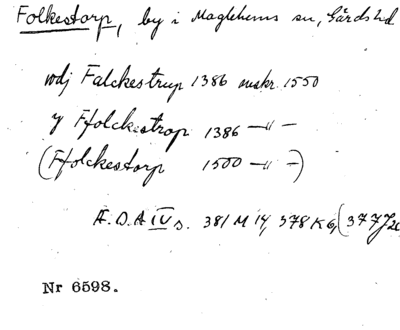 Folkestorp, by i Maglehems sn, Gärds hd
wdj Falckestrup 1386 mskr. 1550
y Ffolckestrop 1386 —〃—
(Ffolckestorp 1500 —〃—)
Æ.D.A IV s. 381 M 14, 378 K 6, (377 J 20
Nr 6598.